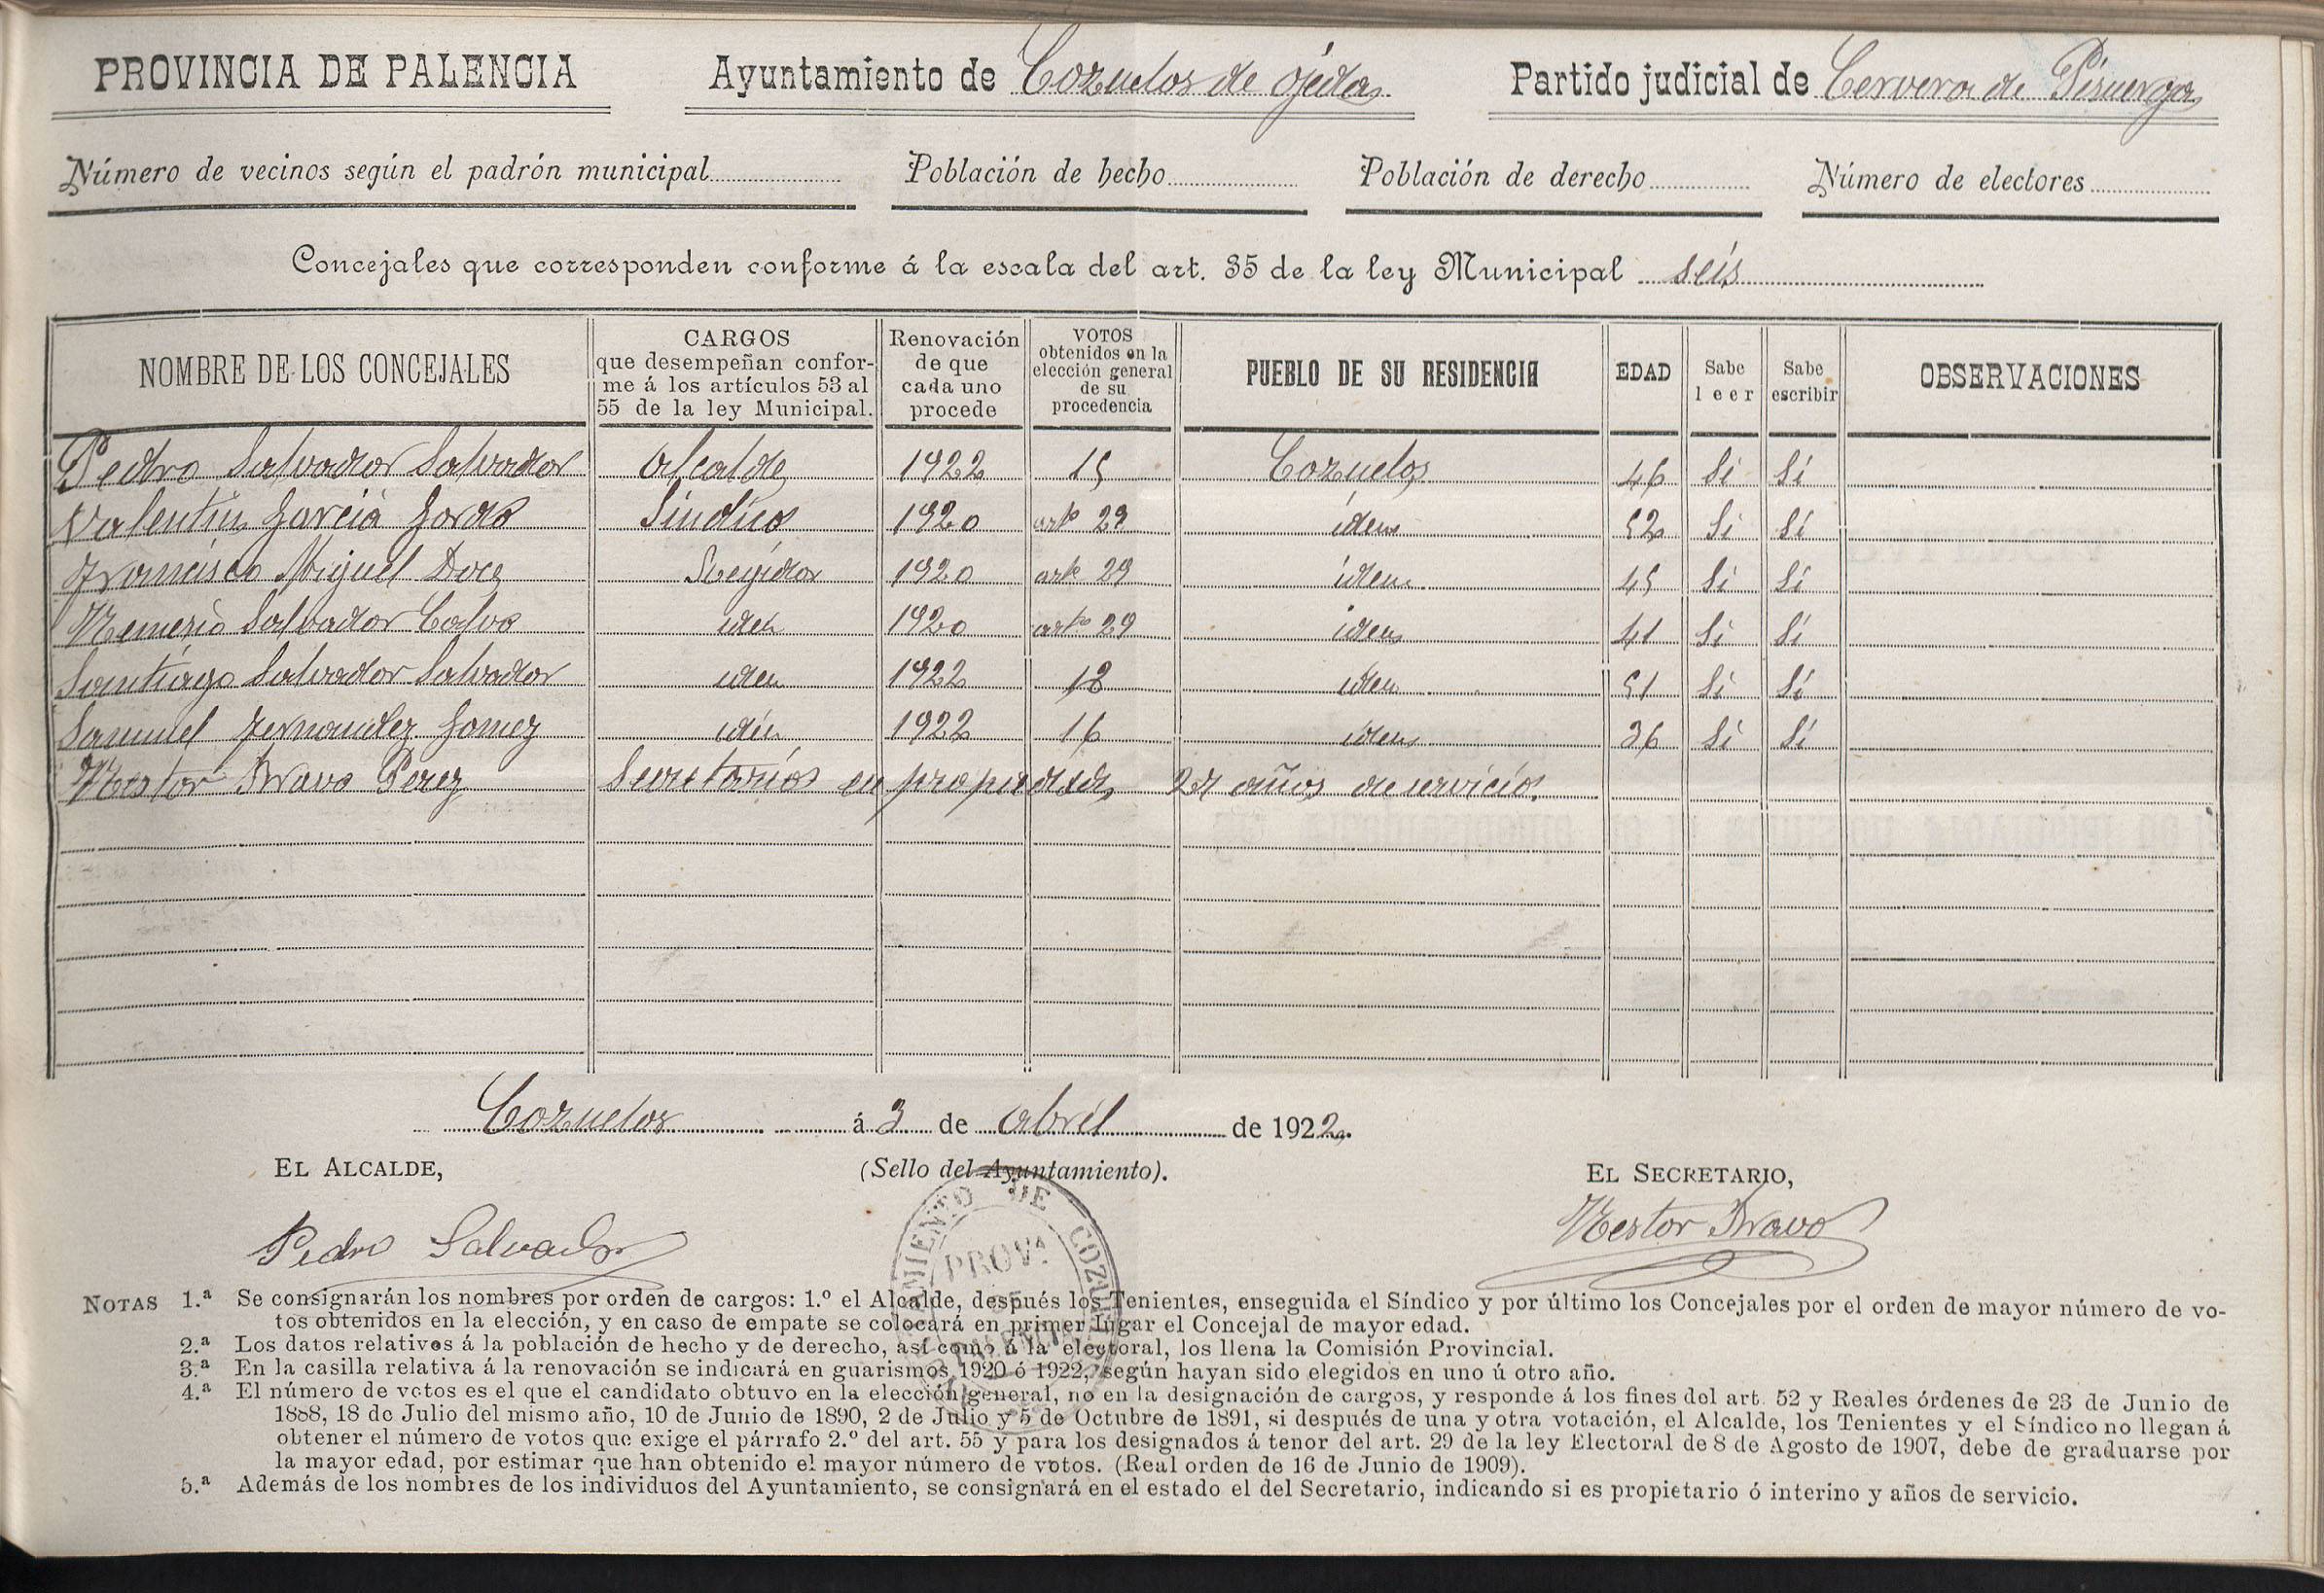 PROVINCIA DE PALENCIA Ayuntamiento de Cozuelos de Ojeda Partido judicial de Cervera de Pisuerga
Número de vecinos según el padrón municipal Población de hecho Población de derecho Número de electores
Concejales que corresponden conforme á la escala del art. 35 de la ley Municipal seis
NOMBRE DE LOS CONCEJALES CARGOS que desempeñan conforme á los artículos 53 al 55 de la ley Municipal. Renovación de que cada uno procede VOTOS obtenidos en la elección general de su procedencia PUEBLO DE SU RESIDENCIA EDAD Sabe leer Sabe escribir OBSERVACIONES
Pedro Salvador Salvador Alcalde 1922 15 Cozuelos 46 Si Si
Valentin Garcia Gordo Sindico 1920 artº 29 idem 52 Si Si
Francisco Miguel Doce Regidor 1920 artº 29 idem 45 Si Si
Nemesio Salvador Calvo idem 1920 artº 29 idem 41 Si Si
Santiago Salvador Salvador idem 1922 18 idem 51 Si Si
Samuel Fernandez Gomez idem 1922 16 idem 36 Si Si
Nestor Bravo Perez Secretario en propiedad, años de servicio.
Cozuelos á 3 de abril de 1922.
EL ALCALDE, (Sello del Ayuntamiento). EL SECRETARIO,
Pedro Salvador Nestor Bravo
NOTAS 1.ª Se consignarán los nombres por orden de cargos: 1.º el Alcalde, después los Tenientes, enseguida el Síndico y por último los Concejales por el orden de mayor número de vo-
tos obtenidos en la elección, y en caso de empate se colocará en primer lugar el Concejal de mayor edad.
2.ª Los datos relativos á la población de hecho y de derecho, así como á la electoral, los llena la Comisión Provincial.
3.ª En la casilla relativa á la renovación se indicará en guarismos 1920 ó 1922, según hayan sido elegidos en uno ú otro año.
4.ª El número de votos es el que el candidato obtuvo en la elección general, no en la designación de cargos, y responde á los fines del art. 52 y Reales órdenes de 23 de Junio de
1888, 18 de Julio del mismo año, 10 de Junio de 1890, 2 de Julio y 5 de Octubre de 1891, si después de una y otra votación, el Alcalde, los Tenientes y el Síndico no llegan á
obtener el número de votos que exige el párrafo 2.º del art. 55 y para los designados á tenor del art. 29 de la ley Electoral de 8 de Agosto de 1907, debe de graduarse por
la mayor edad, por estimar que han obtenido el mayor número de votos. (Real orden de 16 de Junio de 1909).
5.ª Además de los nombres de los individuos del Ayuntamiento, se consignará en el estado el del Secretario, indicando si es propietario ó interino y años de servicio.